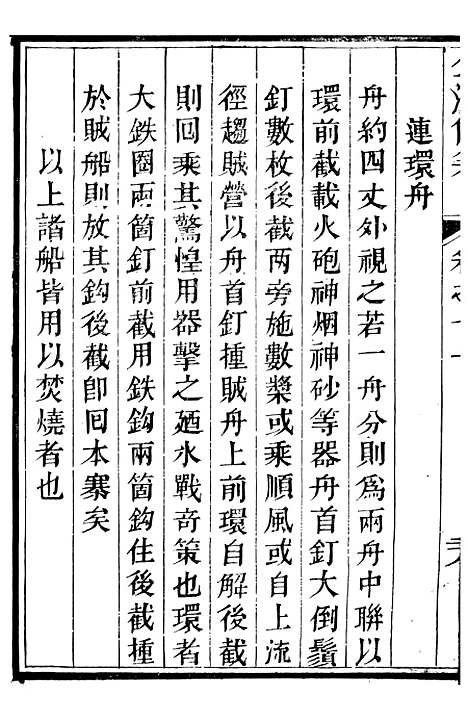 連環舟
舟約四丈外視之若一舟分則爲兩舟中聯以
環前截載火砲神烟神砂等器舟首釘大倒鬚
釘數枚後截两旁施數槳或乘順風或自上流
徑趨賊營以舟首釘撞賊舟上前環自解後截
則回乘其驚惶用器擊之廼水戰奇策也環者
大鉄圈兩箇釘前截用鉄鈎兩箇鈎住後截撞
於賊船則放其鈎後截卽回本寨矣
以上諸船皆用以焚燒者也